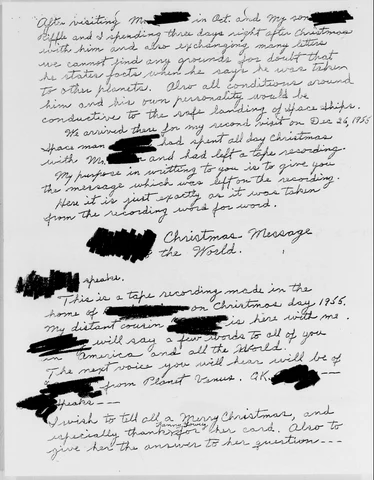 After visiting Mr. in Oct. and my son
and I spending three days right after Christmas
with him and also exchanging many letters
we cannot find any grounds for doubt that
he states facts when he says he was taken
to other planets. Also all conditions around
him and his own personality would be
conductive to the safe landing of space ships.
We arrived there for my second visit on Dec 26, 1955
Space man had spent all day Christmas
with Mr. and had left a tape recording.
My purpose in writting to you is to give you
the message which was left on the recording.
Here it is just exactly as it was taken
from the recording word for word.
Christmas Message
the World.
speaks.
This is a tape recording made in the
home of on Christmas day 1955.
My distant cousin is here with me.
will say a few words to all of you
in America and all the World.
The next voice you will hear will be of
from Planet Venus. O.K. ---
speaks ---
I wish to tell all a Merry Christmas, and
especially thank for her card. Also to
give her the answer to her question ---